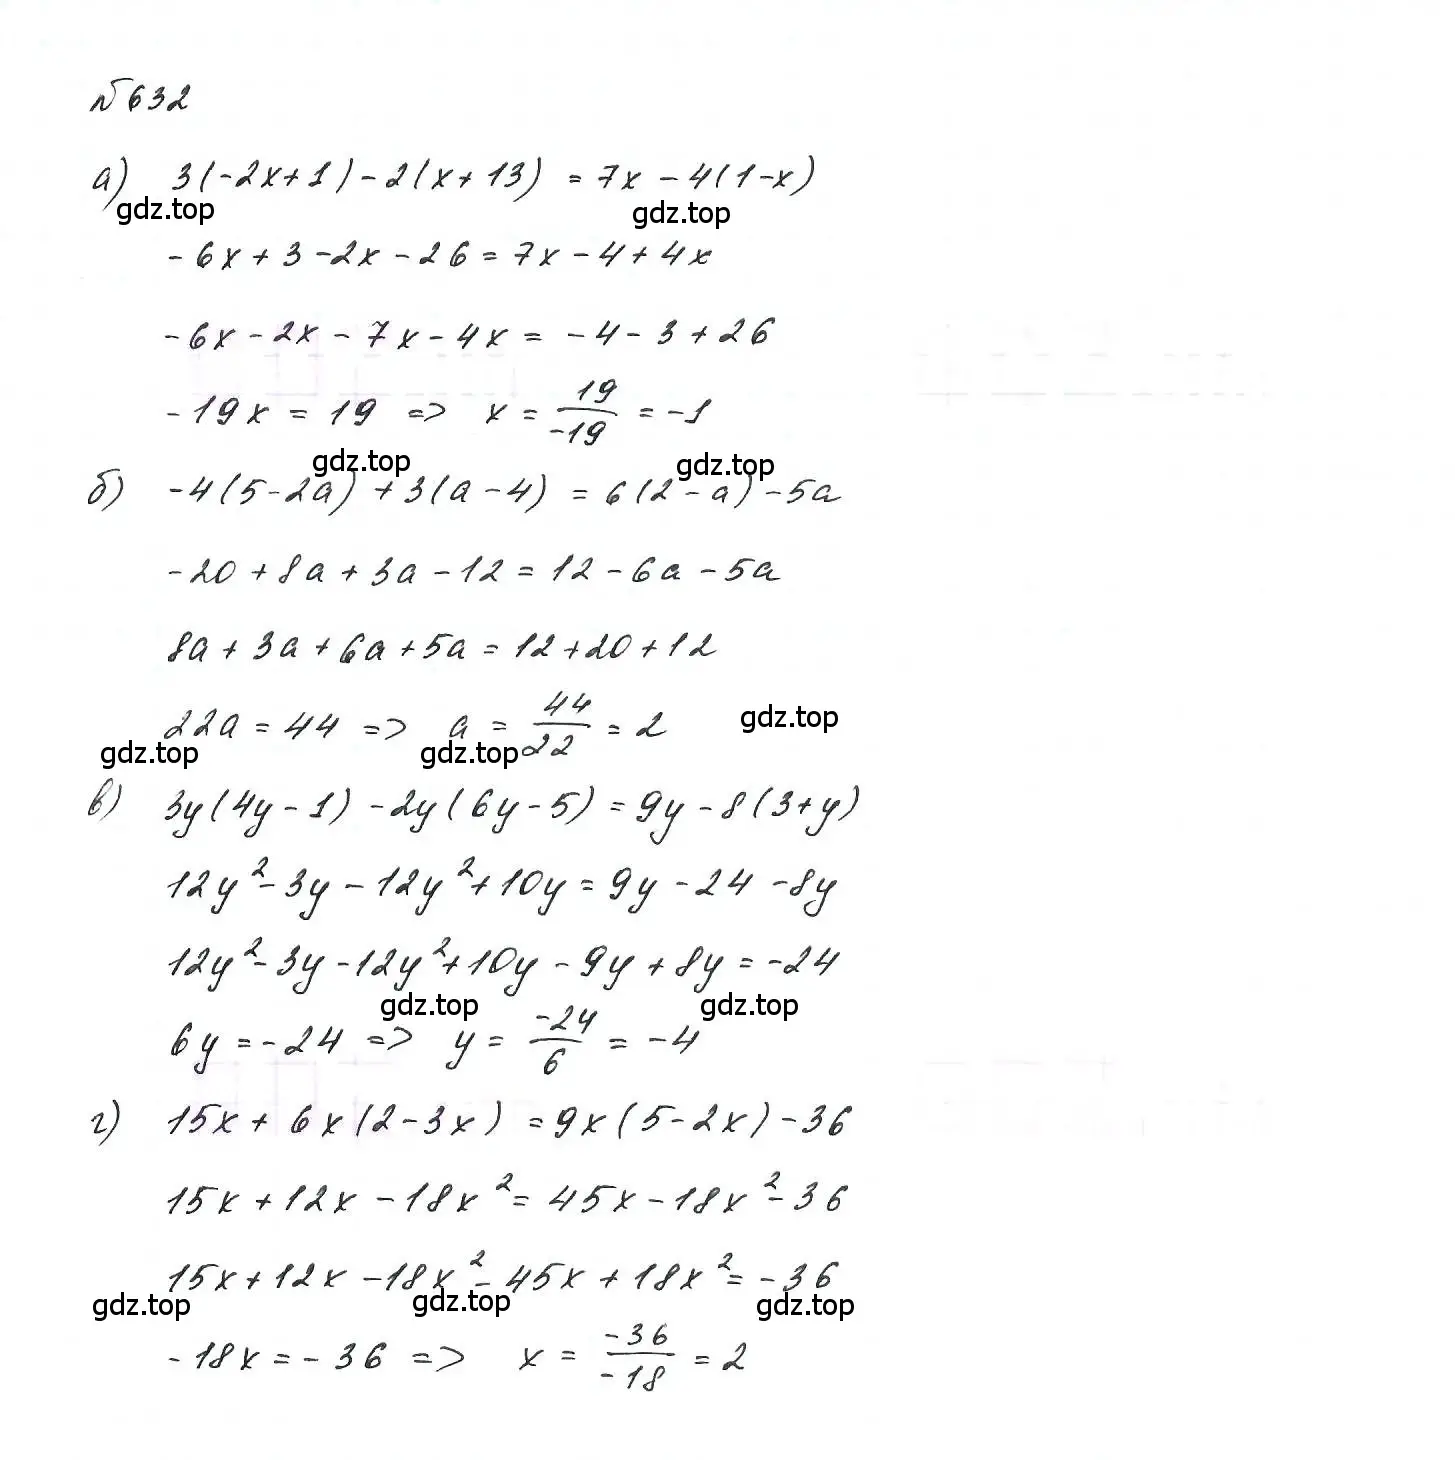 №632
а) 3(-2x+1)-2(x+13) = 7x-4(1-x)
gdz.top gdz.top
-6x+3-2x-26=7x-4+4x
-6x-2x-7x-4x = -4-3+26
-19x = 19 => x = 19/-19 = -1
gdz.top gdz.top
б) -4(5-2a)+3(a-4) = 6(2-a)-5a
-20+8a+3a-12=12-6a-5a
8a+3a+6a+5a=12+20+12
22a=44 => a = 44/22 = 2 gdz.top
gdz.top gdz.top
в) 3y(4y-1)-2y(6y-5)=9y-8(3+y)
12y²-3y-12y²+10y=9y-24-8y
12y²-3y-12y²+10y-9y+8y=-24
gdz.top gdz.top
6y=-24 => y = -24/6 = -4
г) 15x+6x(2-3x)=9x(5-2x)-36
15x+12x-18x²=45x-18x²-36
15x+12x-18x²-45x+18x²=-36
gdz.top gdz.top gdz.top
-18x=-36 => x = -36/-18 = 2